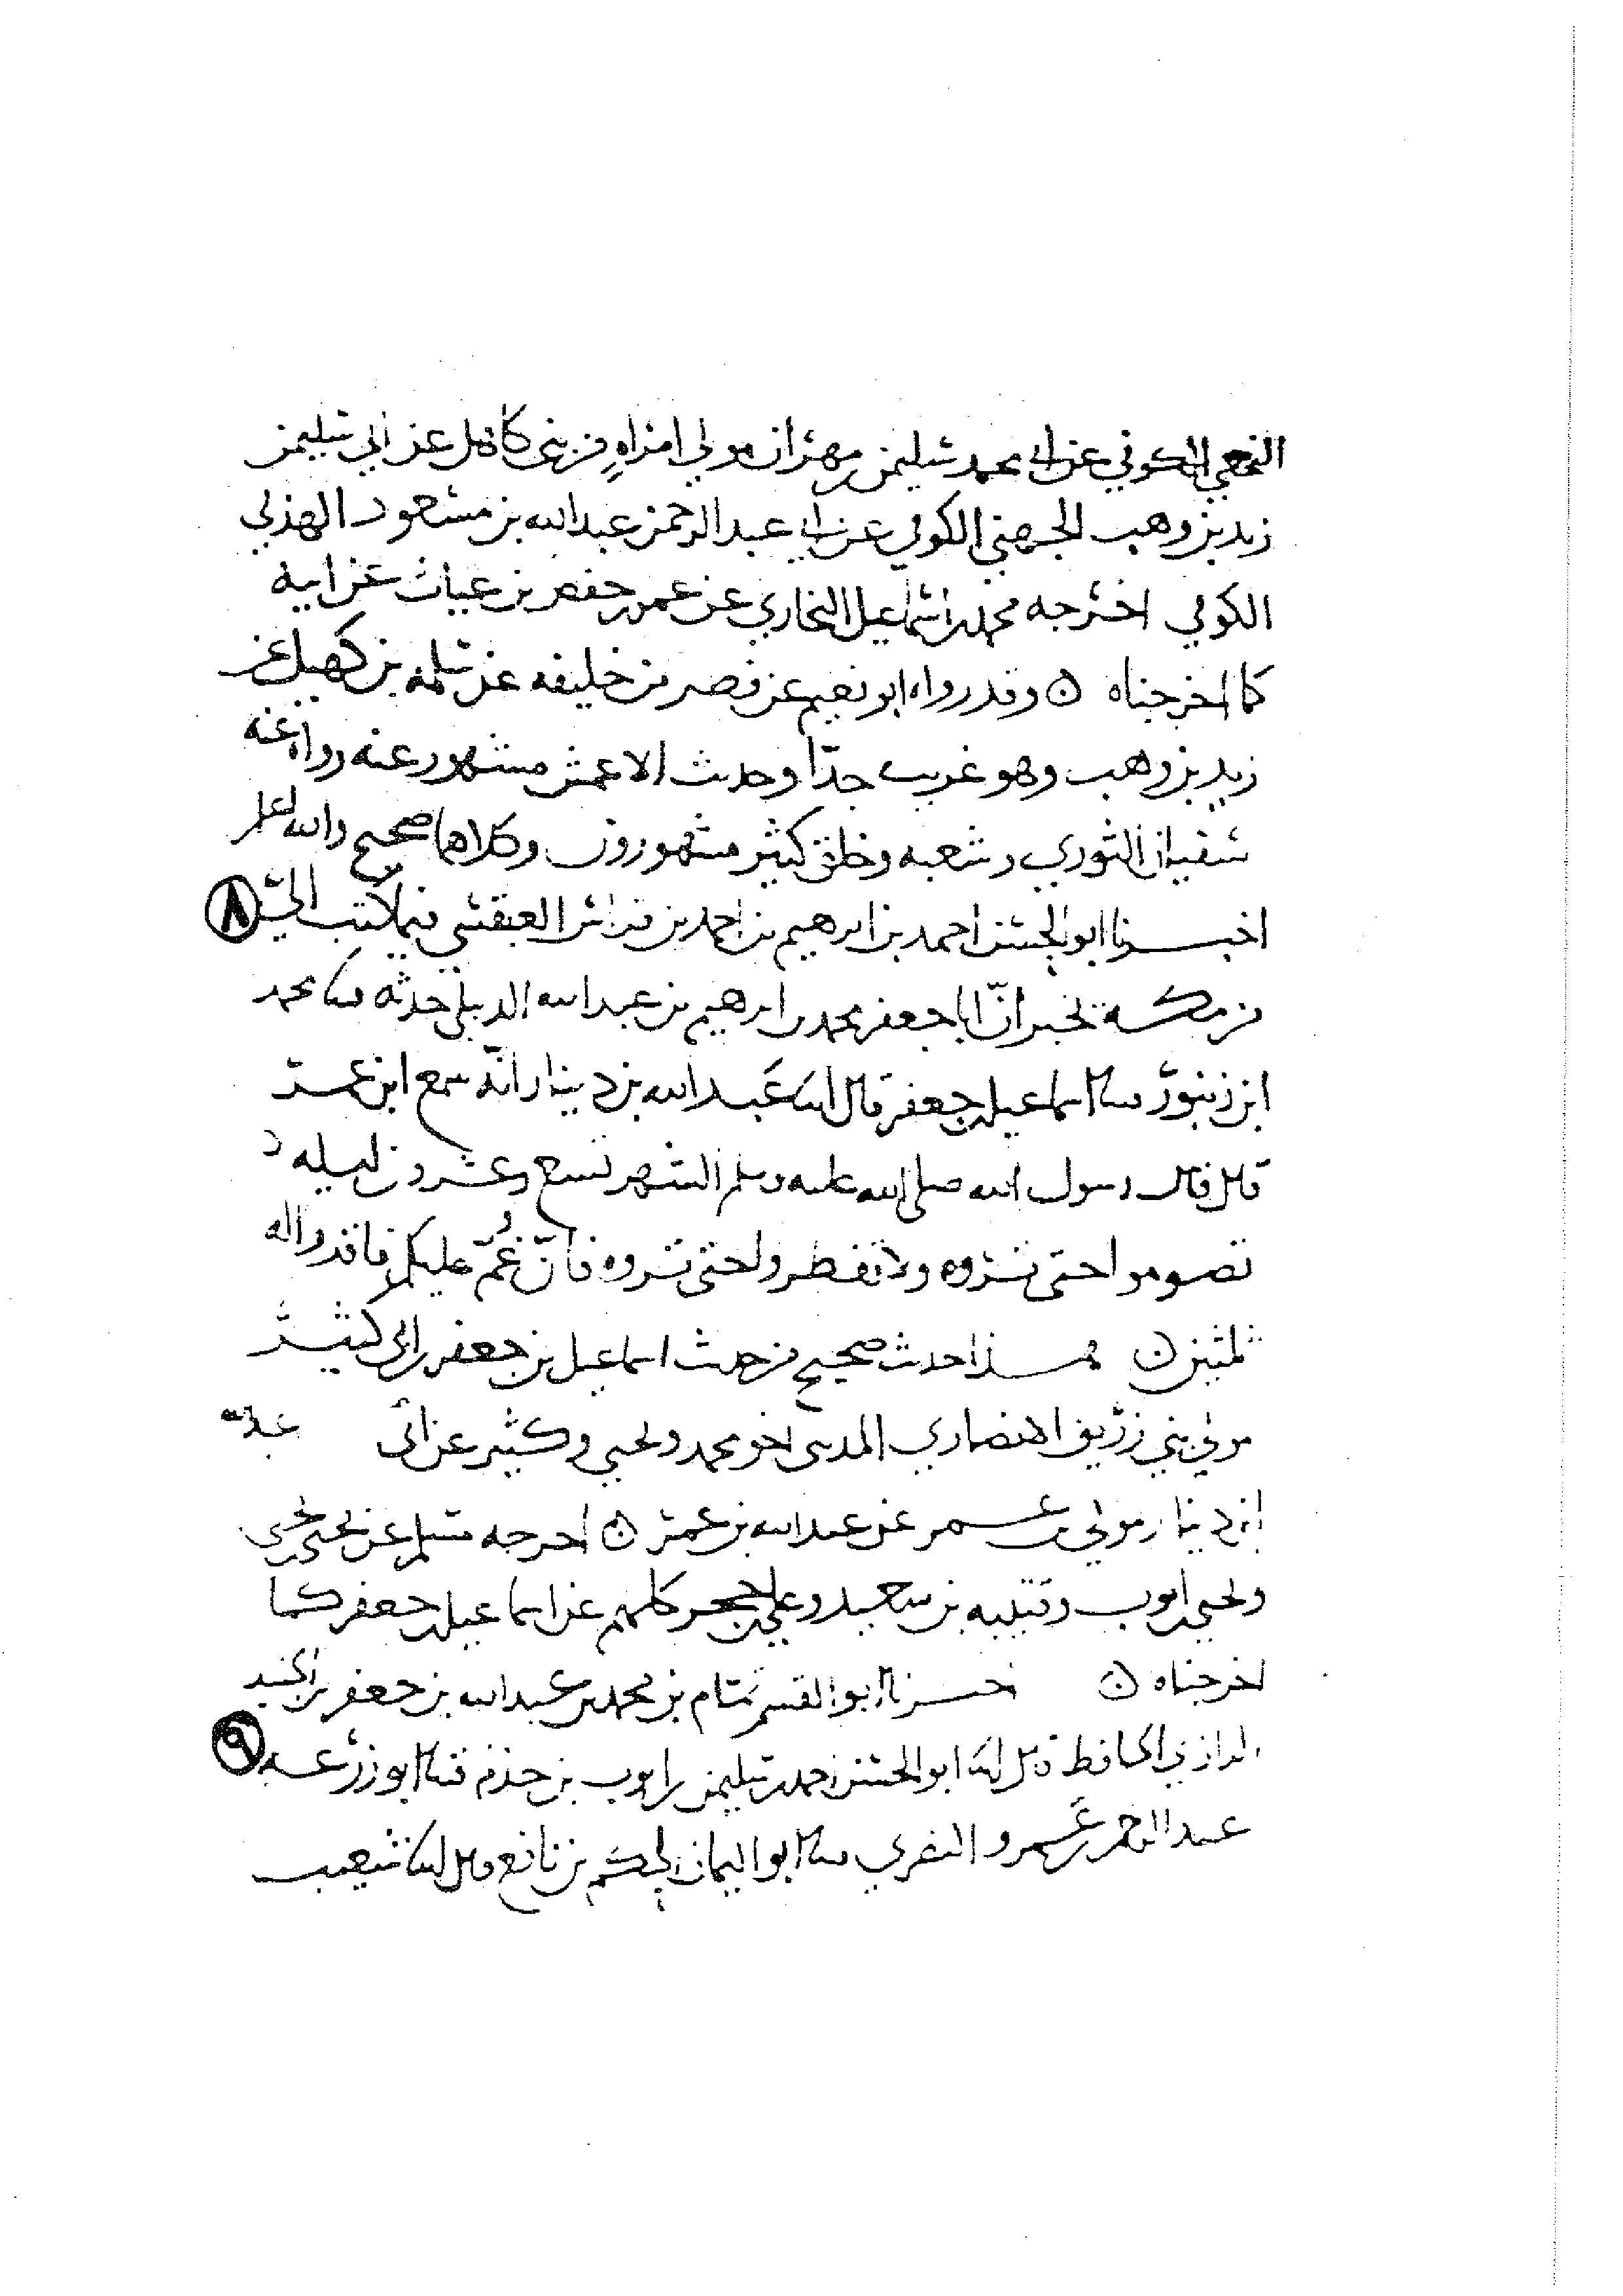 النخعي الكوفي عن ابي محمد سليمن بن مهران مولي امراةٍ من بني كاهل عن ابي سليمن
زيد بن وهب الجهني الكوفي عن ابي عبد الرحمن عبد الله بن مسعود الهذلي
الكوفي اخرجه محمد بن اسماعيل البخاري عن عمر بن حفص بن غياث عن ابيه
كما اخرجناه ن وقد رواه ابو نعيم عن فطر بن خليفه عن سلمه بن كهيل عن
زيد بن وهب وهو غريب جدّا وحديث الاعمش مشهور عنه رواه عنه
سفيان الثوري وشعبه وخلق كثير مشهورون وكلاهما صحيح والله اعلم
اخبرنا ابو الحسن احمد بن ابرهيم بن احمد بن فراس العبقسي فيما كتب اليّ ٨
من مكة يخبر انّ ابا جعفر محمد بن ابرهيم بن عبد الله الديبلي حدثه ثنا محمد
ابن زنبور ثنا اسماعيل بن جعفر قال انا عبد الله بن دينار انّه سمع ابن عمر
قال قال رسول الله صلى الله عليه وسلم الشهر تسع وعشرون ليله لا
تصوموا حتى تروه ولا تفطروا حتى تروه فان غُمّ عليكم فاقدروا له
ثلثين ن هذا حديث صحيح من حديث اسماعيل بن جعفر بن ابي كثير
مولي بني زريق الانصاري المدني اخو محمد ويحيي وكثير عن ابي عبد الله
ابن دينار مولي بن عمر عن عبد الله بن عمر ن اخرجه مسلم عن يحيي بن يحيي
ويحيي بن ايوب وقتيبه بن سعيد وعلي بن حجر كلهم عن اسماعيل بن جعفر كما
اخرجناه ن اخبرنا ابو القسم تمام بن محمد بن عبد الله بن جعفر بن الجنيد
الرازي الحافظ قال انا ابو الحسن احمد بن سليمن بن ايوب بن حذلم ثنا ابو زرعه ٩
عبد الرحمن بن عمرو النصري ثنا ابو اليمان الحكم بن نافع قال انا شعيب